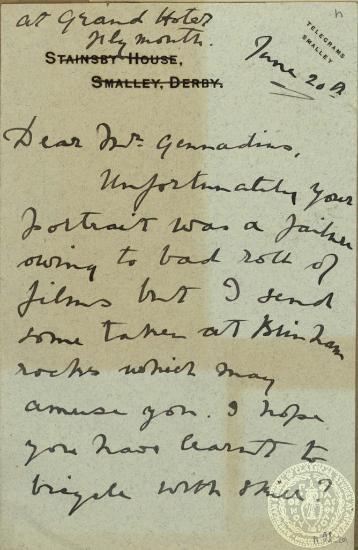 at Grand Hotel
Plymouth.
TELEGRAMS
SMALLEY
STAINSBY HOUSE,
SMALLEY, DERBY.
June 20th
Dear Mr. Gennadius,
Unfortunately your
portrait was a failure
owing to bad roll of
films but I send
some taken at Brimham
rocks which may
amuse you. I hope
you have learnt to
bicycle with skill?